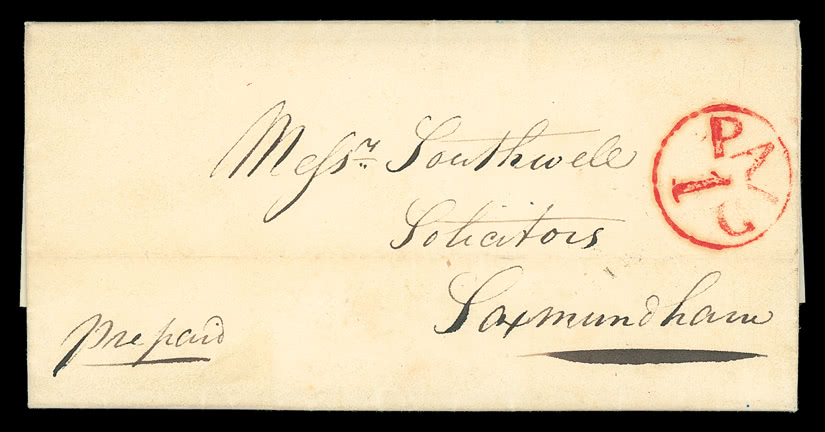 Messrs. Southwell
Solicitors
Saxmundham
Prepaid
P
1
G